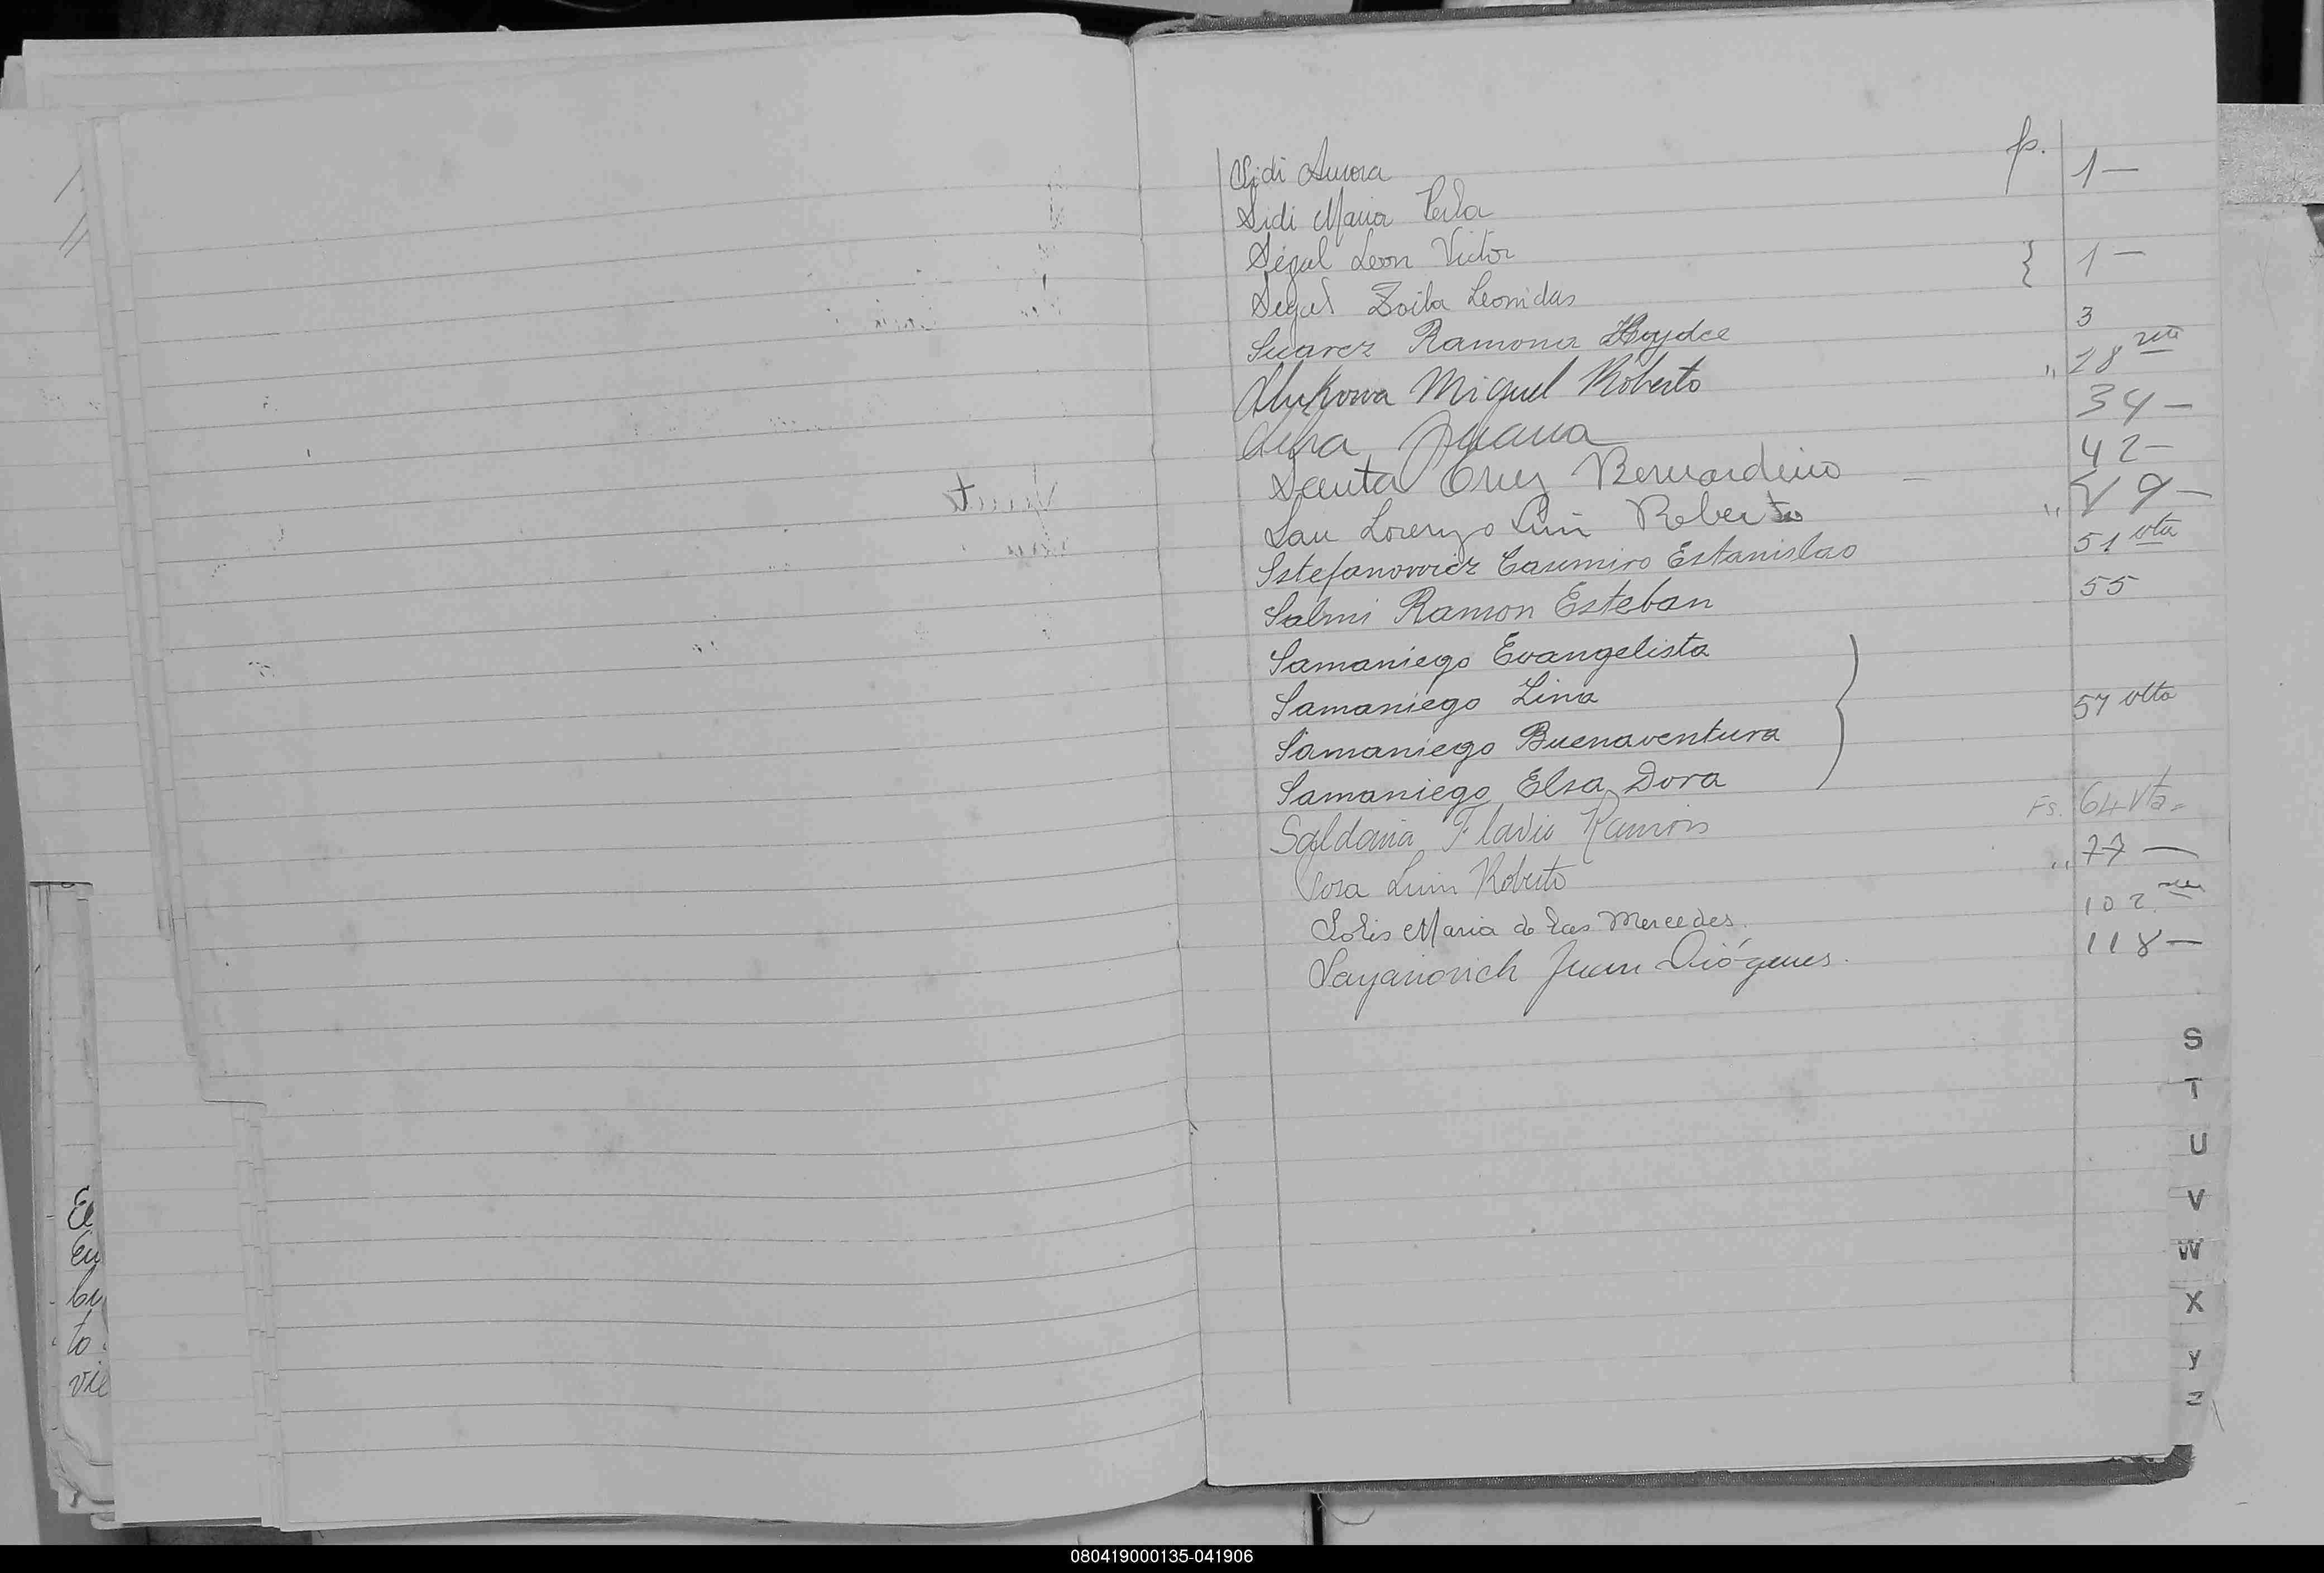 El
Eu
to
vie
Sidi Aurora fs. 1 —
Sidi Maria Perla
Ségal Leon Victor } 1 —
Segal Zoila Leonidas
Suarez Ramona Haydee 3
Miguel Roberto " 28
Juana 34 —
Santa Cruz Bernardino — 42 —
San Lorenzo Luis Roberto " 49 —
Sstefanowicz Casimiro Estanislao 51 vta
Salmi Ramon Esteban 55
Samaniego Evangelista
Samaniego Lina
Samaniego Buenaventura } 57 vlta
Samaniego Elsa Dora
Saldaña Flavio Ramón Fs. 64 Vta.
Sosa Luis Roberto " 77 —
Solis Maria de las Mercedes. 102
Sayanovich Juan Diógenes. 118 —
S
T
U
V
W
X
y
Z
080419000135-041906